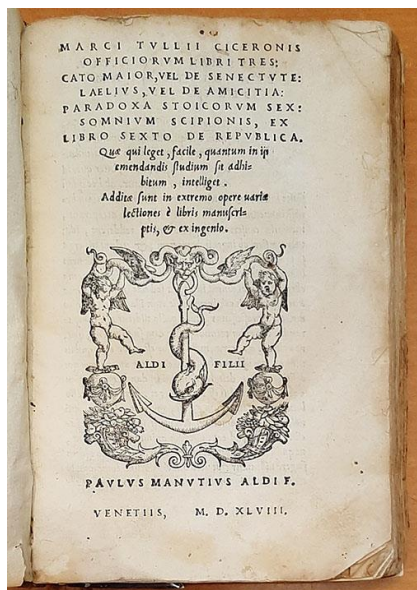 MARCI TVLLII CICERONIS
OFFICIORVM LIBRI TRES:
CATO MAIOR, VEL DE SENECTVTE:
LAELIVS, VEL DE AMICITIA:
PARADOXA STOICORVM SEX:
SOMNIVM SCIPIONIS, EX
LIBRO SEXTO DE REPVBLICA.
Quæ qui leget, facile, quantum in ijs
emendandis studium sit adhi-
bitum, intelliget.
Additæ sunt in extremo opere uariæ
lectiones è libris manuscri-
ptis, & ex ingenio.
ALDI FILII
PAVLVS MANVTIVS ALDI F.
VENETIIS, M. D. XLVIII.